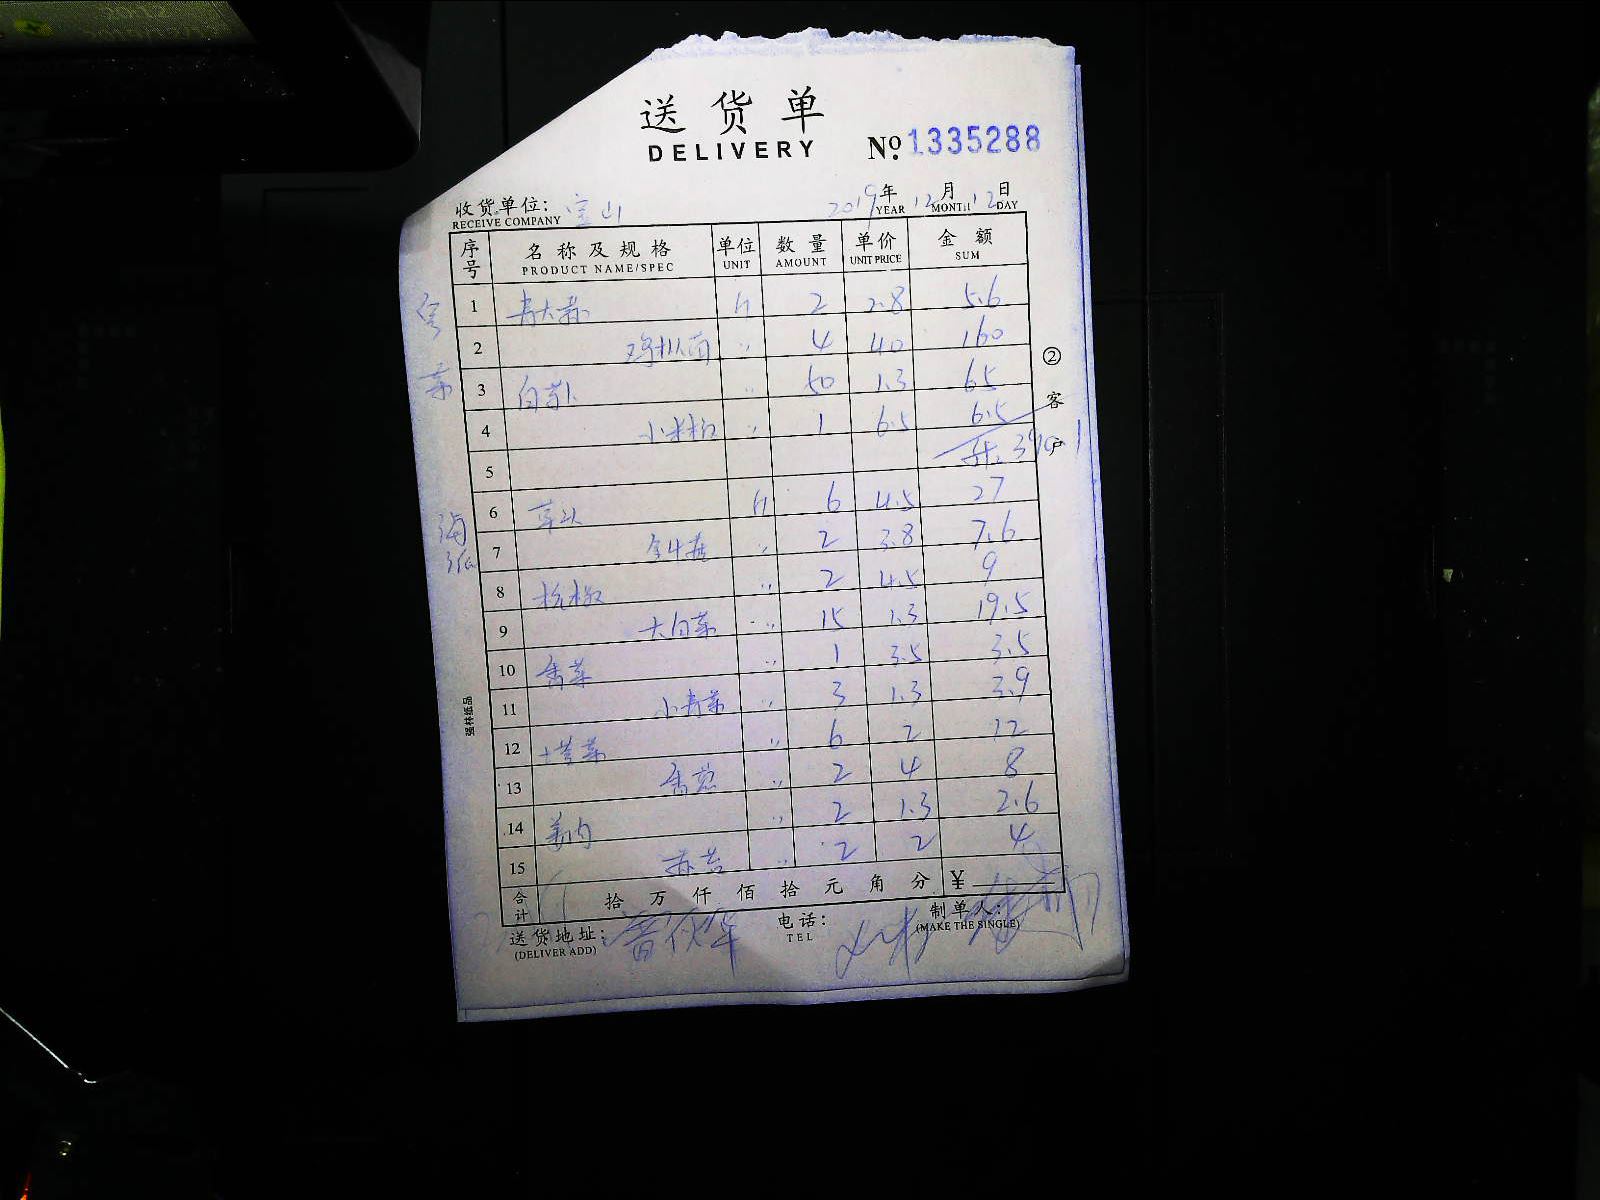 送货单
DELIVERY
No. 1335288
收货单位: 宝山 2019年12月12日
RECEIVE COMPANY YEAR MONTH DAY
序号 名称及规格 单位 数量 单价 金额
PRODUCT NAME/SPEC UNIT AMOUNT UNIT PRICE SUM
1 青大蒜 斤 2 2.8 5.6
2 鸡枞菌 〃 4 40 160
3 白菜 〃 50 1.3 65
4 小米椒 〃 1 6.5 6.5
5
6 草头 斤 6 4.5 27
7 〃 2 3.8 7.6
8 杭椒 〃 2 4.5 9
9 大白菜 〃 15 1.3 19.5
10 香菜 〃 1 3.5 3.5
11 小青菜 〃 3 1.3 3.9
12 塔菜 〃 6 2 12
13 香葱 〃 2 4 8
14 〃 2 1.3 2.6
15 〃 2 2 4
合计 拾万仟佰拾元角分 ¥
送货地址: 电话: 制单人:
(DELIVER ADD) TEL (MAKE THE SINGLE)
②客户
强林纸品